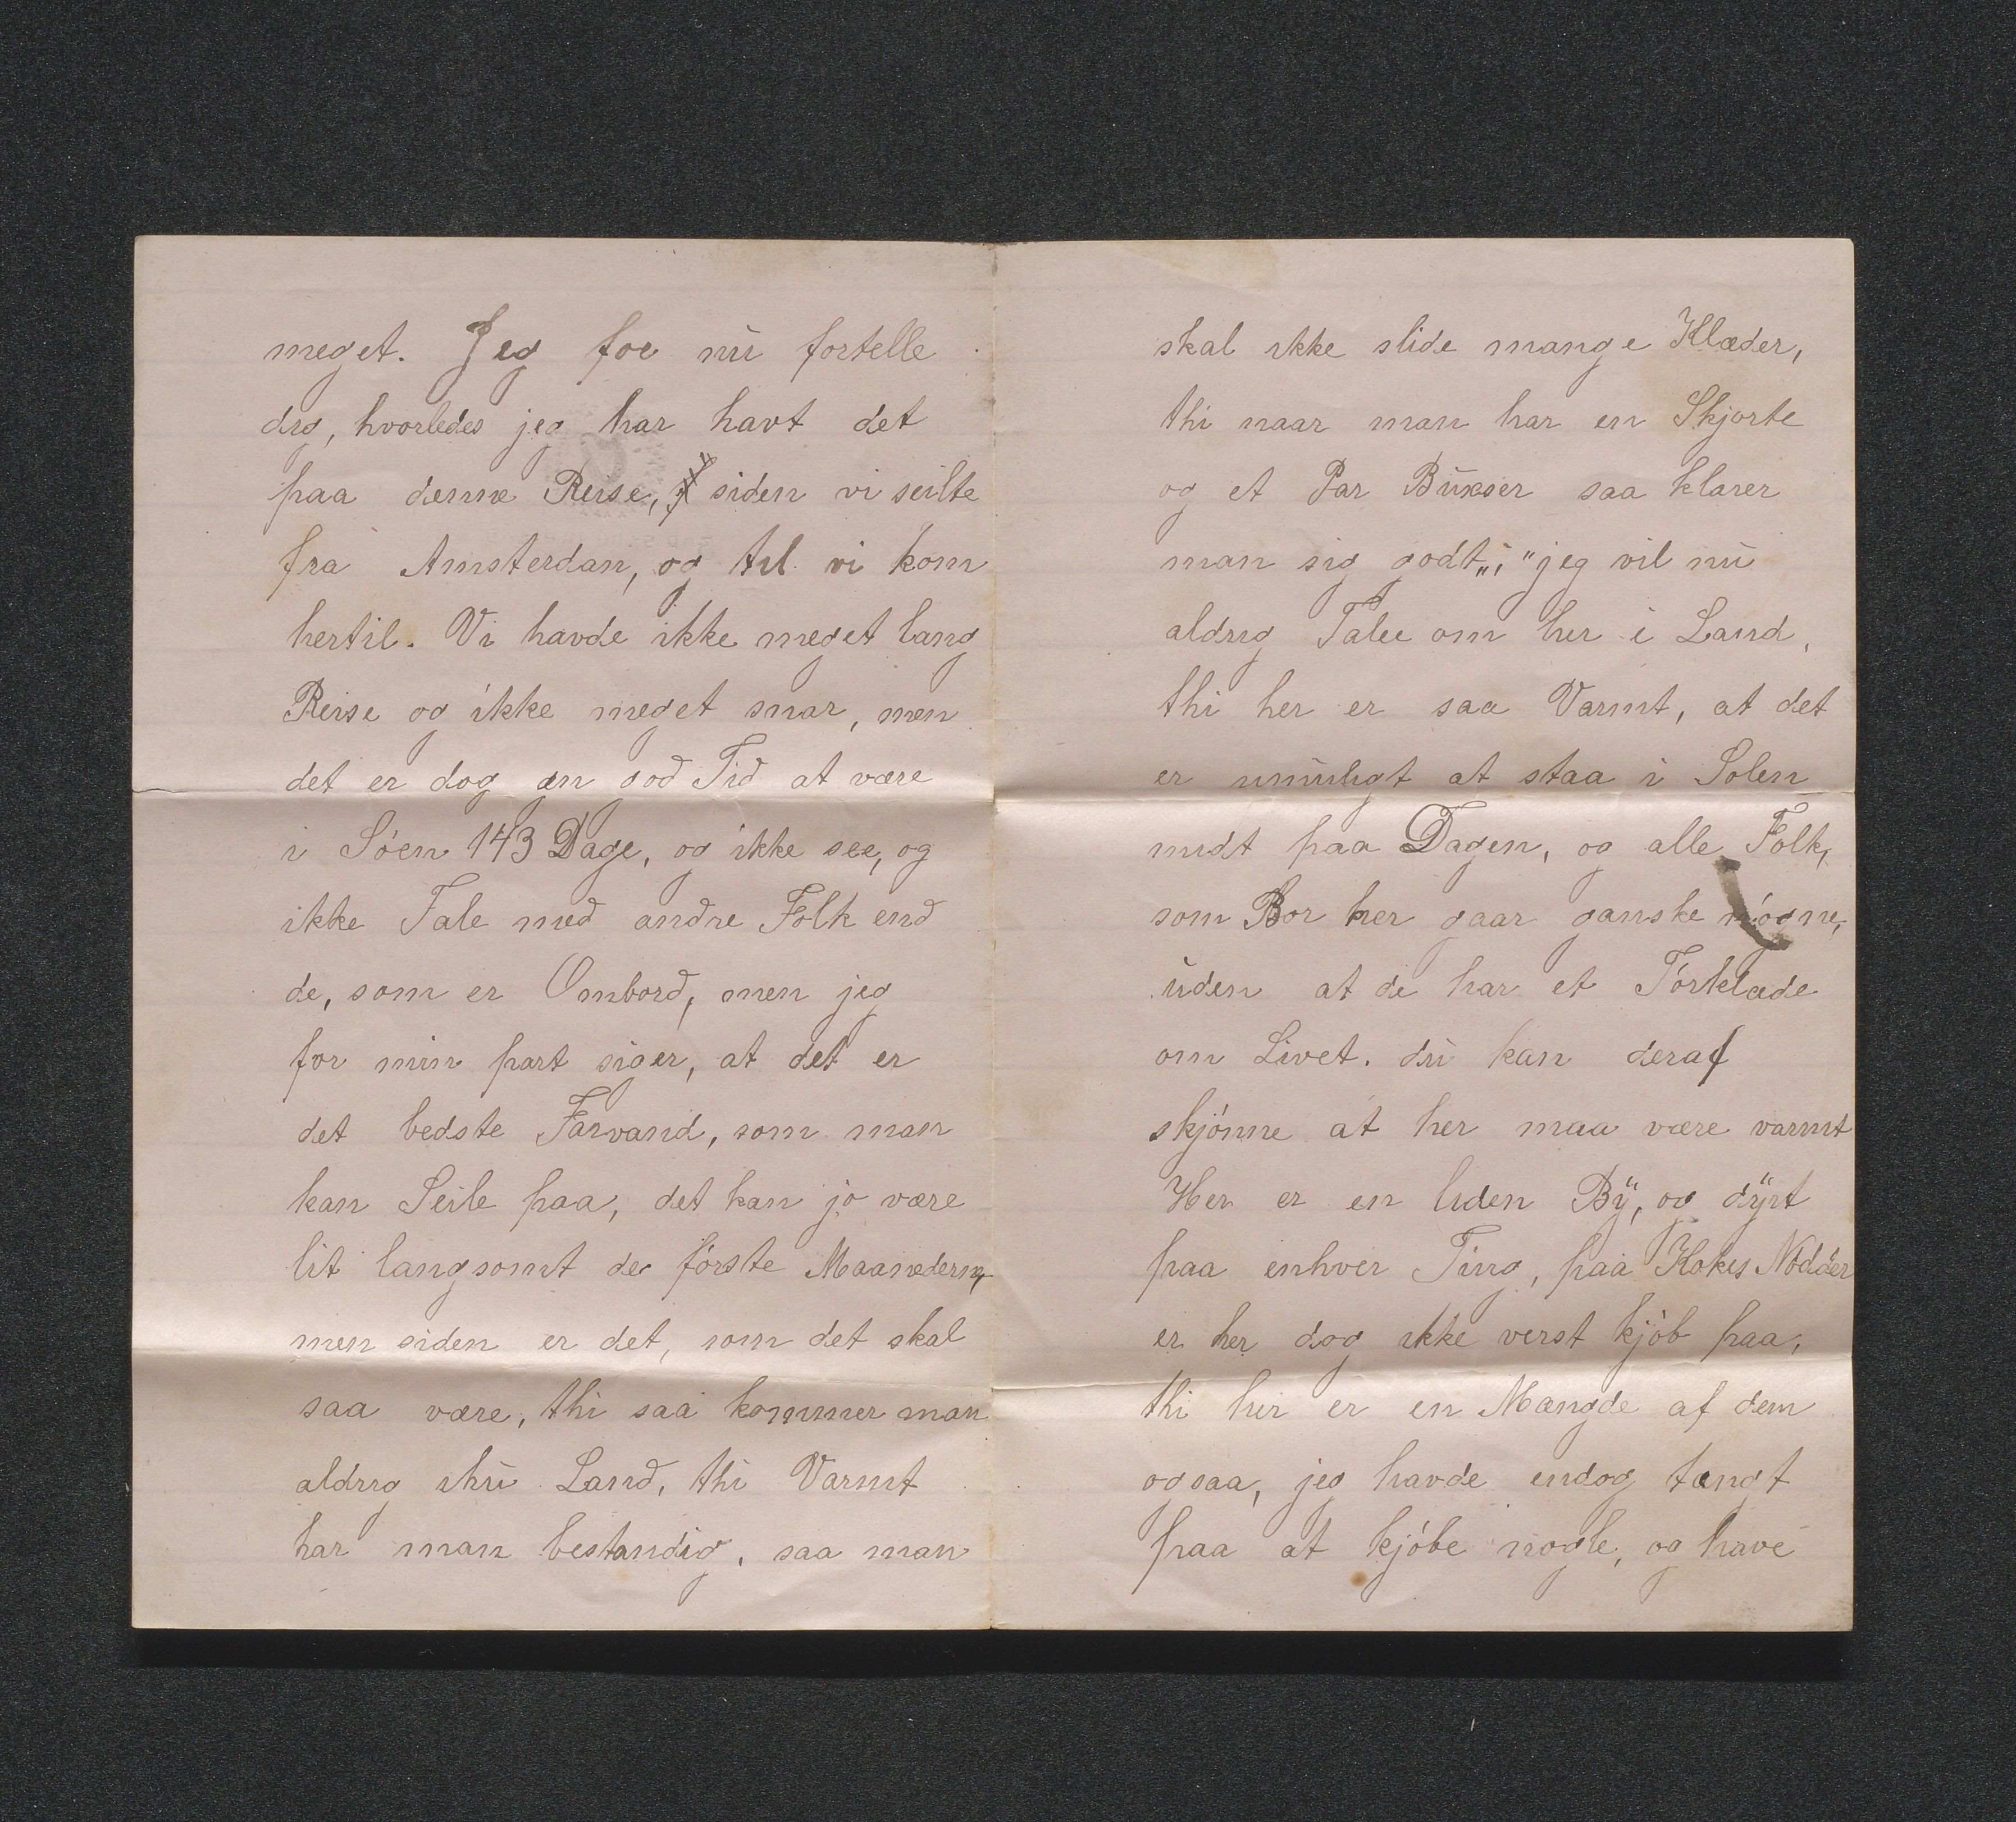 meget. Jeg foe nu fortelle
dig, hvorledes jeg har havt det
paa denne Reise, siden vi seilte
fra Amsterdan, og til vi kom
hertil. Vi havde ikke meget lang
Reise og ikke meget snar, men
det er dog en god Tid at være
i Söen 143 Dage, og ikke see, og
ikke Tale med andre Folk end
de, som er Ombord, men jeg
for min part siger, at det er
det bedste Farvand, som man
kan Seile paa, det kan jo være
lit langsomt de förste Maanederne,
men siden er det, som det skal
saa være, thi saa kommer man
aldrig ihu Land, thi Varmt
har man bestandig, saa man
skal ikke slide mange Klæder,
thi naar man har en Skjorte
og et Par Buxser saa klarer
man sig godt„i" jeg vil nu
aldrig Talee om her i Land,
thi her er saa Varmt, at det
er umuligt at staa i Solen
midt paa Dagen, og alle Folk,
som Bor her gaar ganske nögne,
uden at de har et Törklæde
om Livet. du kan deraf
skjönne at her maa være varmt
Her er en liden Bÿ, og dÿrt
paa enhver Ting, paa Kokes Nödder
er her dog ikke verst kjöb paa,
thi her er en Mængde af dem
ogsaa, jeg havde endog tængt
paa at kjöbe nogle, og have